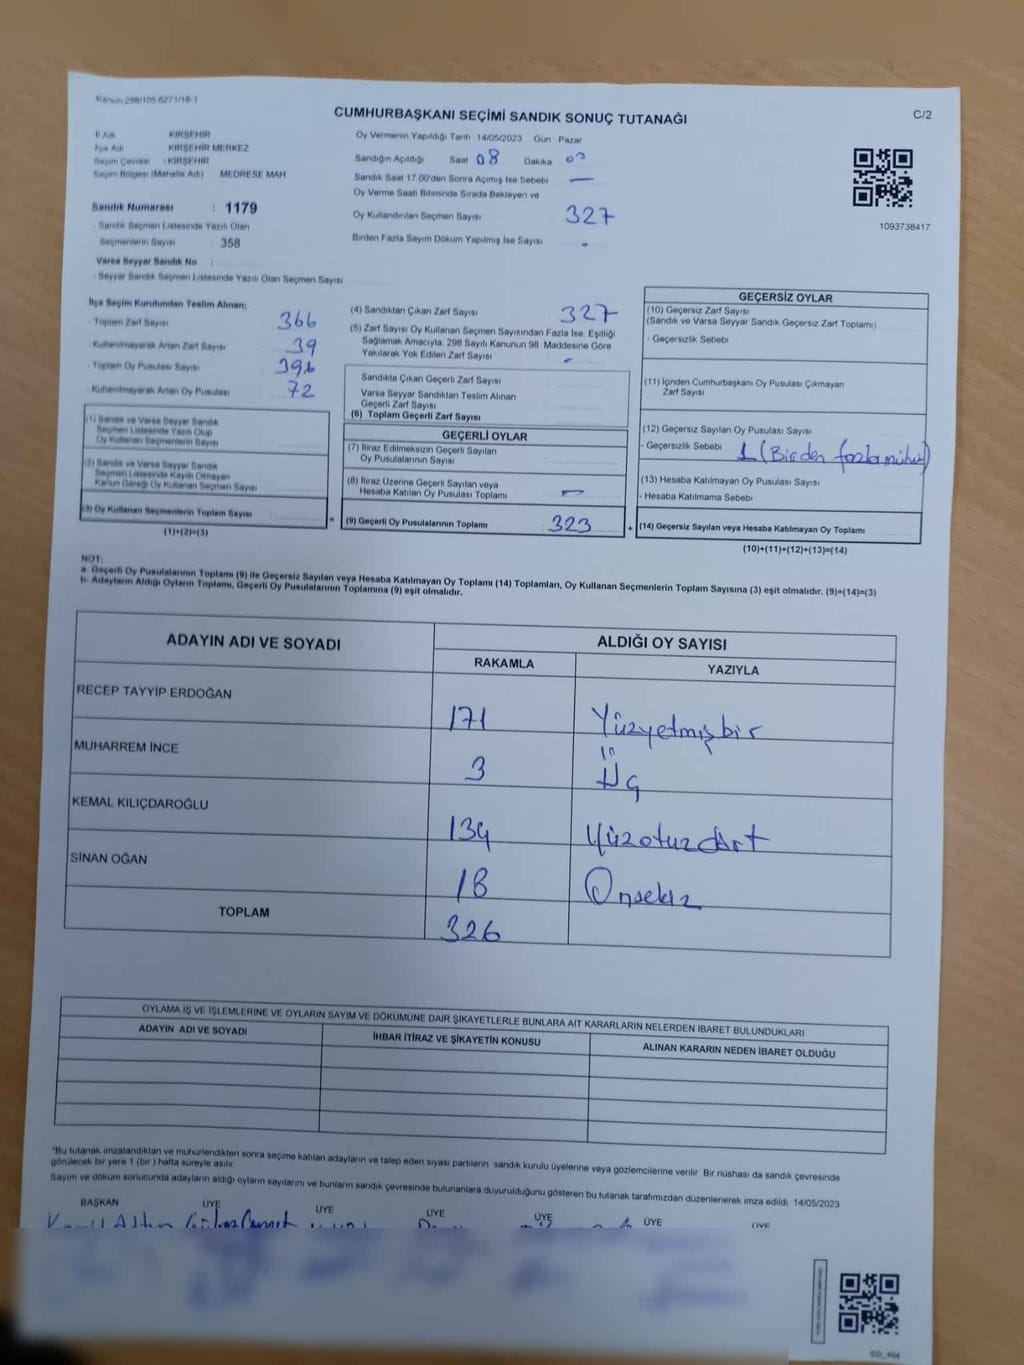 Kanun:298/105 6271/18-1
CUMHURBAŞKANI SEÇİMİ SANDIK SONUÇ TUTANAĞI
C/2
İl Adı KIRŞEHİR
İlçe Adı KIRŞEHİR MERKEZ
Seçim Çevresi : KIRŞEHİR
Seçim Bölgesi (Mahalle Adı) MEDRESE MAH
Sandık Numarası : 1179
- Sandık Seçmen Listesinde Yazılı Olan
Seçmenlerin Sayısı : 358
Varsa Seyyar Sandık No :
- Seyyar Sandık Seçmen Listesinde Yazılı Olan Seçmen Sayısı
Oy Vermenin Yapıldığı Tarih 14/05/2023 Gün Pazar
Sandığın Açıldığı Saat 08 Dakika 00
Sandık Saat 17.00'den Sonra Açımış İse Sebebi —
Oy Verme Saati Bitiminde Sırada Bekleyen ve
Oy Kullandırılan Seçmen Sayısı 327
Birden Fazla Sayım Döküm Yapılmış İse Sayısı -
1093738417
İlçe Seçim Kurulundan Teslim Alınan;
- Toplam Zarf Sayısı 366
- Kullanılmayarak Artan Zarf Sayısı 39
- Toplam Oy Pusulası Sayısı 396
- Kullanılmayarak Artan Oy Pusulası 72
(1) Sandık ve Varsa Seyyar Sandık
Seçmen Listesinde Yazılı Olup
Oy Kullanan Seçmenlerin Sayısı
(2) Sandık ve Varsa Seyyar Sandık
Seçmen Listesinde Kayıtlı Olmayan
Kanun Gereği Oy Kullanan Seçmen Sayısı
(3) Oy Kullanan Seçmenlerin Toplam Sayısı =
(1)+(2)=(3)
(4) Sandıktan Çıkan Zarf Sayısı 327
(5) Zarf Sayısı Oy Kullanan Seçmen Sayısından Fazla İse, Eşitliği
Sağlamak Amacıyla, 298 Sayılı Kanunun 98. Maddesine Göre
Yakılarak Yok Edilen Zarf Sayısı -
Sandıkta Çıkan Geçerli Zarf Sayısı
Varsa Seyyar Sandıktan Teslim Alınan
Geçerli Zarf Sayısı
(6) Toplam Geçerli Zarf Sayısı
GEÇERLİ OYLAR
(7) İtiraz Edilmeksizin Geçerli Sayılan
Oy Pusulalarının Sayısı
(8) İtiraz Üzerine Geçerli Sayılan veya
Hesaba Katılan Oy Pusulası Toplamı —
(9) Geçerli Oy Pusulalarının Toplamı : 323 +
GEÇERSİZ OYLAR
(10) Geçersiz Zarf Sayısı
(Sandık ve Varsa Seyyar Sandık Geçersiz Zarf Toplamı)
- Geçersizlik Sebebi
(11) İçinden Cumhurbaşkanı Oy Pusulası Çıkmayan
Zarf Sayısı
(12) Geçersiz Sayılan Oy Pusulası Sayısı
- Geçersizlik Sebebi 1 (Birden fazla mühür)
(13) Hesaba Katılmayan Oy Pusulası Sayısı
- Hesaba Katılmama Sebebi
(14) Geçersiz Sayılan veya Hesaba Katılmayan Oy Toplamı
(10)+(11)+(12)+(13)=(14)
NOT:
a- Geçerli Oy Pusulalarının Toplamı (9) ile Geçersiz Sayılan veya Hesaba Katılmayan Oy Toplamı (14) Toplamları, Oy Kullanan Seçmenlerin Toplam Sayısına (3) eşit olmalıdır. (9)+(14)=(3)
b- Adayların Aldığı Oyların Toplamı, Geçerli Oy Pusulalarının Toplamına (9) eşit olmalıdır.
ADAYIN ADI VE SOYADI ALDIĞI OY SAYISI
RAKAMLA YAZIYLA
RECEP TAYYİP ERDOĞAN 171 Yüzyetmişbir
MUHARREM İNCE 3 Üç
KEMAL KILIÇDAROĞLU 134 Yüzotuzdört
SİNAN OĞAN 18 Onsekiz
TOPLAM 326
OYLAMA İŞ VE İŞLEMLERİNE VE OYLARIN SAYIM VE DÖKÜMÜNE DAİR ŞİKAYETLERLE BUNLARA AİT KARARLARIN NELERDEN İBARET BULUNDUKLARI
ADAYIN ADI VE SOYADI İHBAR İTİRAZ VE ŞİKAYETİN KONUSU ALINAN KARARIN NEDEN İBARET OLDUĞU
*Bu tutanak imzalandıktan ve mühürlendikten sonra seçime katılan adayların ve talep eden siyasi partilerin sandık kurulu üyelerine veya gözlemcilerine verilir. Bir nüshası da sandık çevresinde
görülecek bir yere 1 (bir) hafta süreyle asılır.
Sayım ve döküm sonucunda adayların aldığı oyların sayılarını ve bunların sandık çevresinde bulunanlara duyurulduğunu gösteren bu tutanak tarafımızdan düzenlenerek imza edildi. 14/05/2023
BAŞKAN ÜYE ÜYE ÜYE ÜYE ÜYE ÜYE